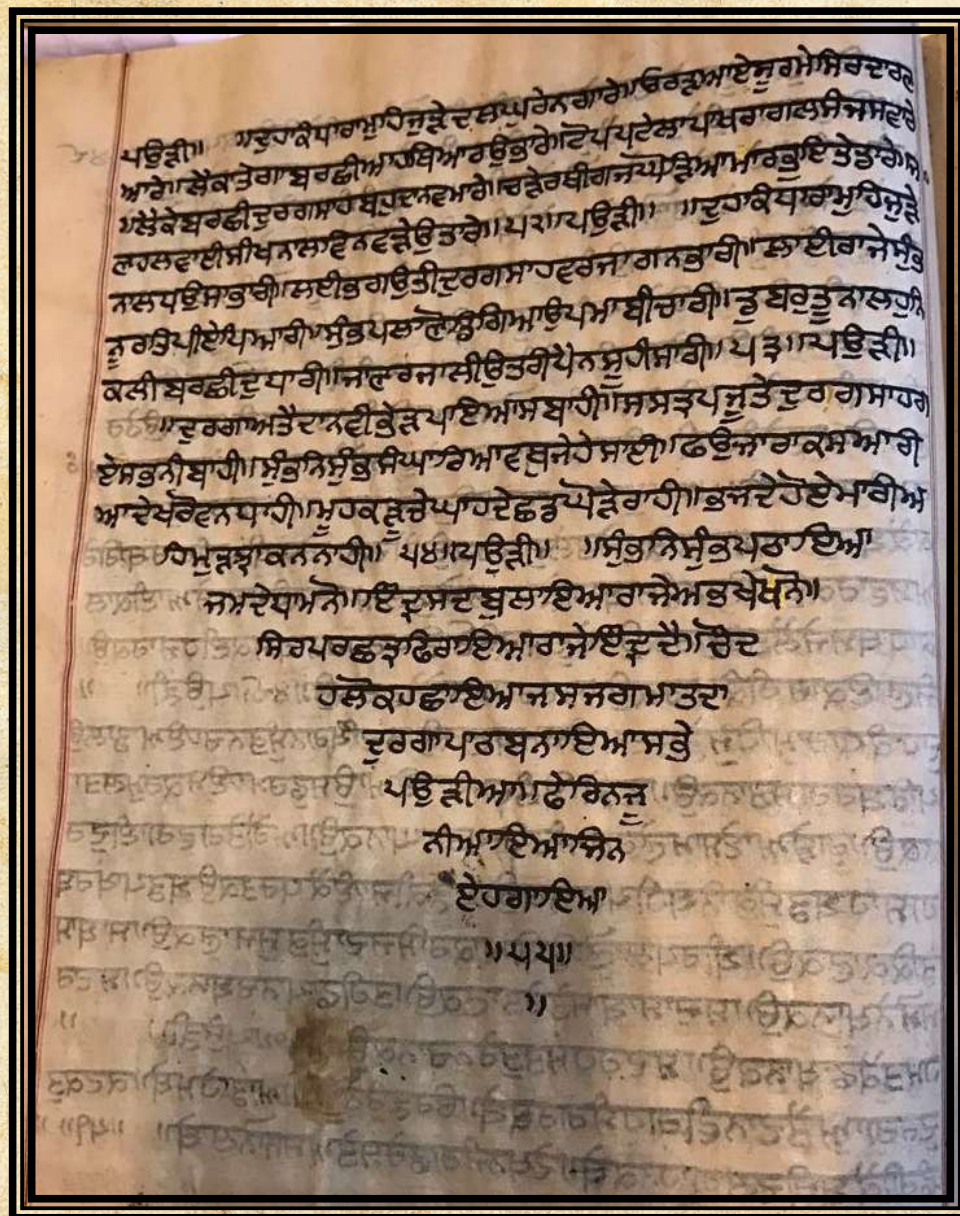 ਪਉੜੀ॥ ॥ਦੁਹਾਕੰਧਾਰਾਮੁਹਿਜੁੜੇਦਲਘੁਰੇਨਗਾਰੇ॥ਓਰੜਆਏਸੂਰਮੇਸਿਰਦਾਰਰਣ
ਆਰੇ॥ਲੈਕੇਤੇਗਾਬਰਛੀਆਹਥਿਆਰਉਭਾਰੇ॥ਟੋਪਪਟੇਲਾਪਾਖਰਾਗਲਸੰਜਸਵਾਰੇ
॥ਲੈਕੇਬਰਛੀਦੁਰਗਸਾਹਬਹੁਦਾਨਵਮਾਰੇ॥ਚੜੇਰਥੀਗਜਘੋੜਿਆਮਾਰਭੁਇਤੇਡਾਰੇ॥
ਲਹਲਵਾਈਸੀਖਨਲਾਵਿਨਵੜੇਉਤਾਰੇ॥੫੨॥ਪਉੜੀ॥ ॥ਦੁਹਾਕੰਧਾਰਾਮੁਹਿਜੁੜੇ
ਨਾਲਧਉਸਾਭਾਰੀ॥ਲਈਭਗਉਤੀਦੁਰਗਸਾਹਵਰਜਾਗਨਭਾਰੀ॥ਲਾਈਰਾਜੇਸੁੰਭ
ਨੂਰਤੁਪੀਏਪਿਆਰੀ॥ਸੁੰਭਪਲਾਣੋਡਿਗਿਆਉਪਮਾਬੀਚਾਰੀ॥ਡੁਬਰਤੂਨਾਲਹੁਨਿ
ਕਲੀਬਰਛੀਦੁਧਾਰੀ॥ਜਾਣਰਜਾਦੀਉਤਰੀਪੈਨਸੂਹੀਸਾਰੀ॥ ੫੩॥ਪਉੜੀ॥
॥ਦੁਰਗਾਅਤੈਦਾਨਵੀਭੇੜਪਾਇਆਸਬਾਹੀ॥ਸਸਤ੍ਰਪਜੂਤੇਦੁਰਗਸਾਹਗ
ਏਸਭਨੀਬਾਹੀ॥ਸੁੰਭਨਿਸੁੰਭਸੰਘਾਰਿਆਵਥੁਜੇਹੇਸਾਈ॥ਫਉਜਾਰਾਕਸਆਰੀ
ਆਦੇਖਰੋਵਨਧਾਹੀ॥ਮੂਹਕੜੂਚੇਘਾਹਦੇਛਡਘੋੜੇਰਾਹੀ॥ਭਜਦੇਹੋਏਮਾਰੀਅ
ਹਿਮੁੜਝਾਕਨਨਾਹੀ॥ ੫੪॥ਪਉੜੀ॥ ॥ਸੁੰਭਨਿਸੁੰਭਪਠਾਇਆ
ਜਮਦੇਧਾਮਨੋ॥ਇੰਦ੍ਰਸਦਬੁਲਾਇਆਰਾਜੇਅਭਖੇਖਨੋ॥
ਸਿਰਪਰਛਤ੍ਰਫਿਰਾਇਆਰਾਜੇਇੰਦ੍ਰਦੈ॥ਚੌਦ
ਹਲੋਕਹਛਾਇਆਜਸਜਗਮਾਤਦਾ
ਦੁਰਗਾਪਾਠਬਨਾਇਆਸਭੇ
ਪਉੜੀਆ॥ਫੇਰਿਨਜੂ
ਨੀਆਇਆਜਿਨ
ਏਹਗਾਇਆ
॥੫੫॥
॥